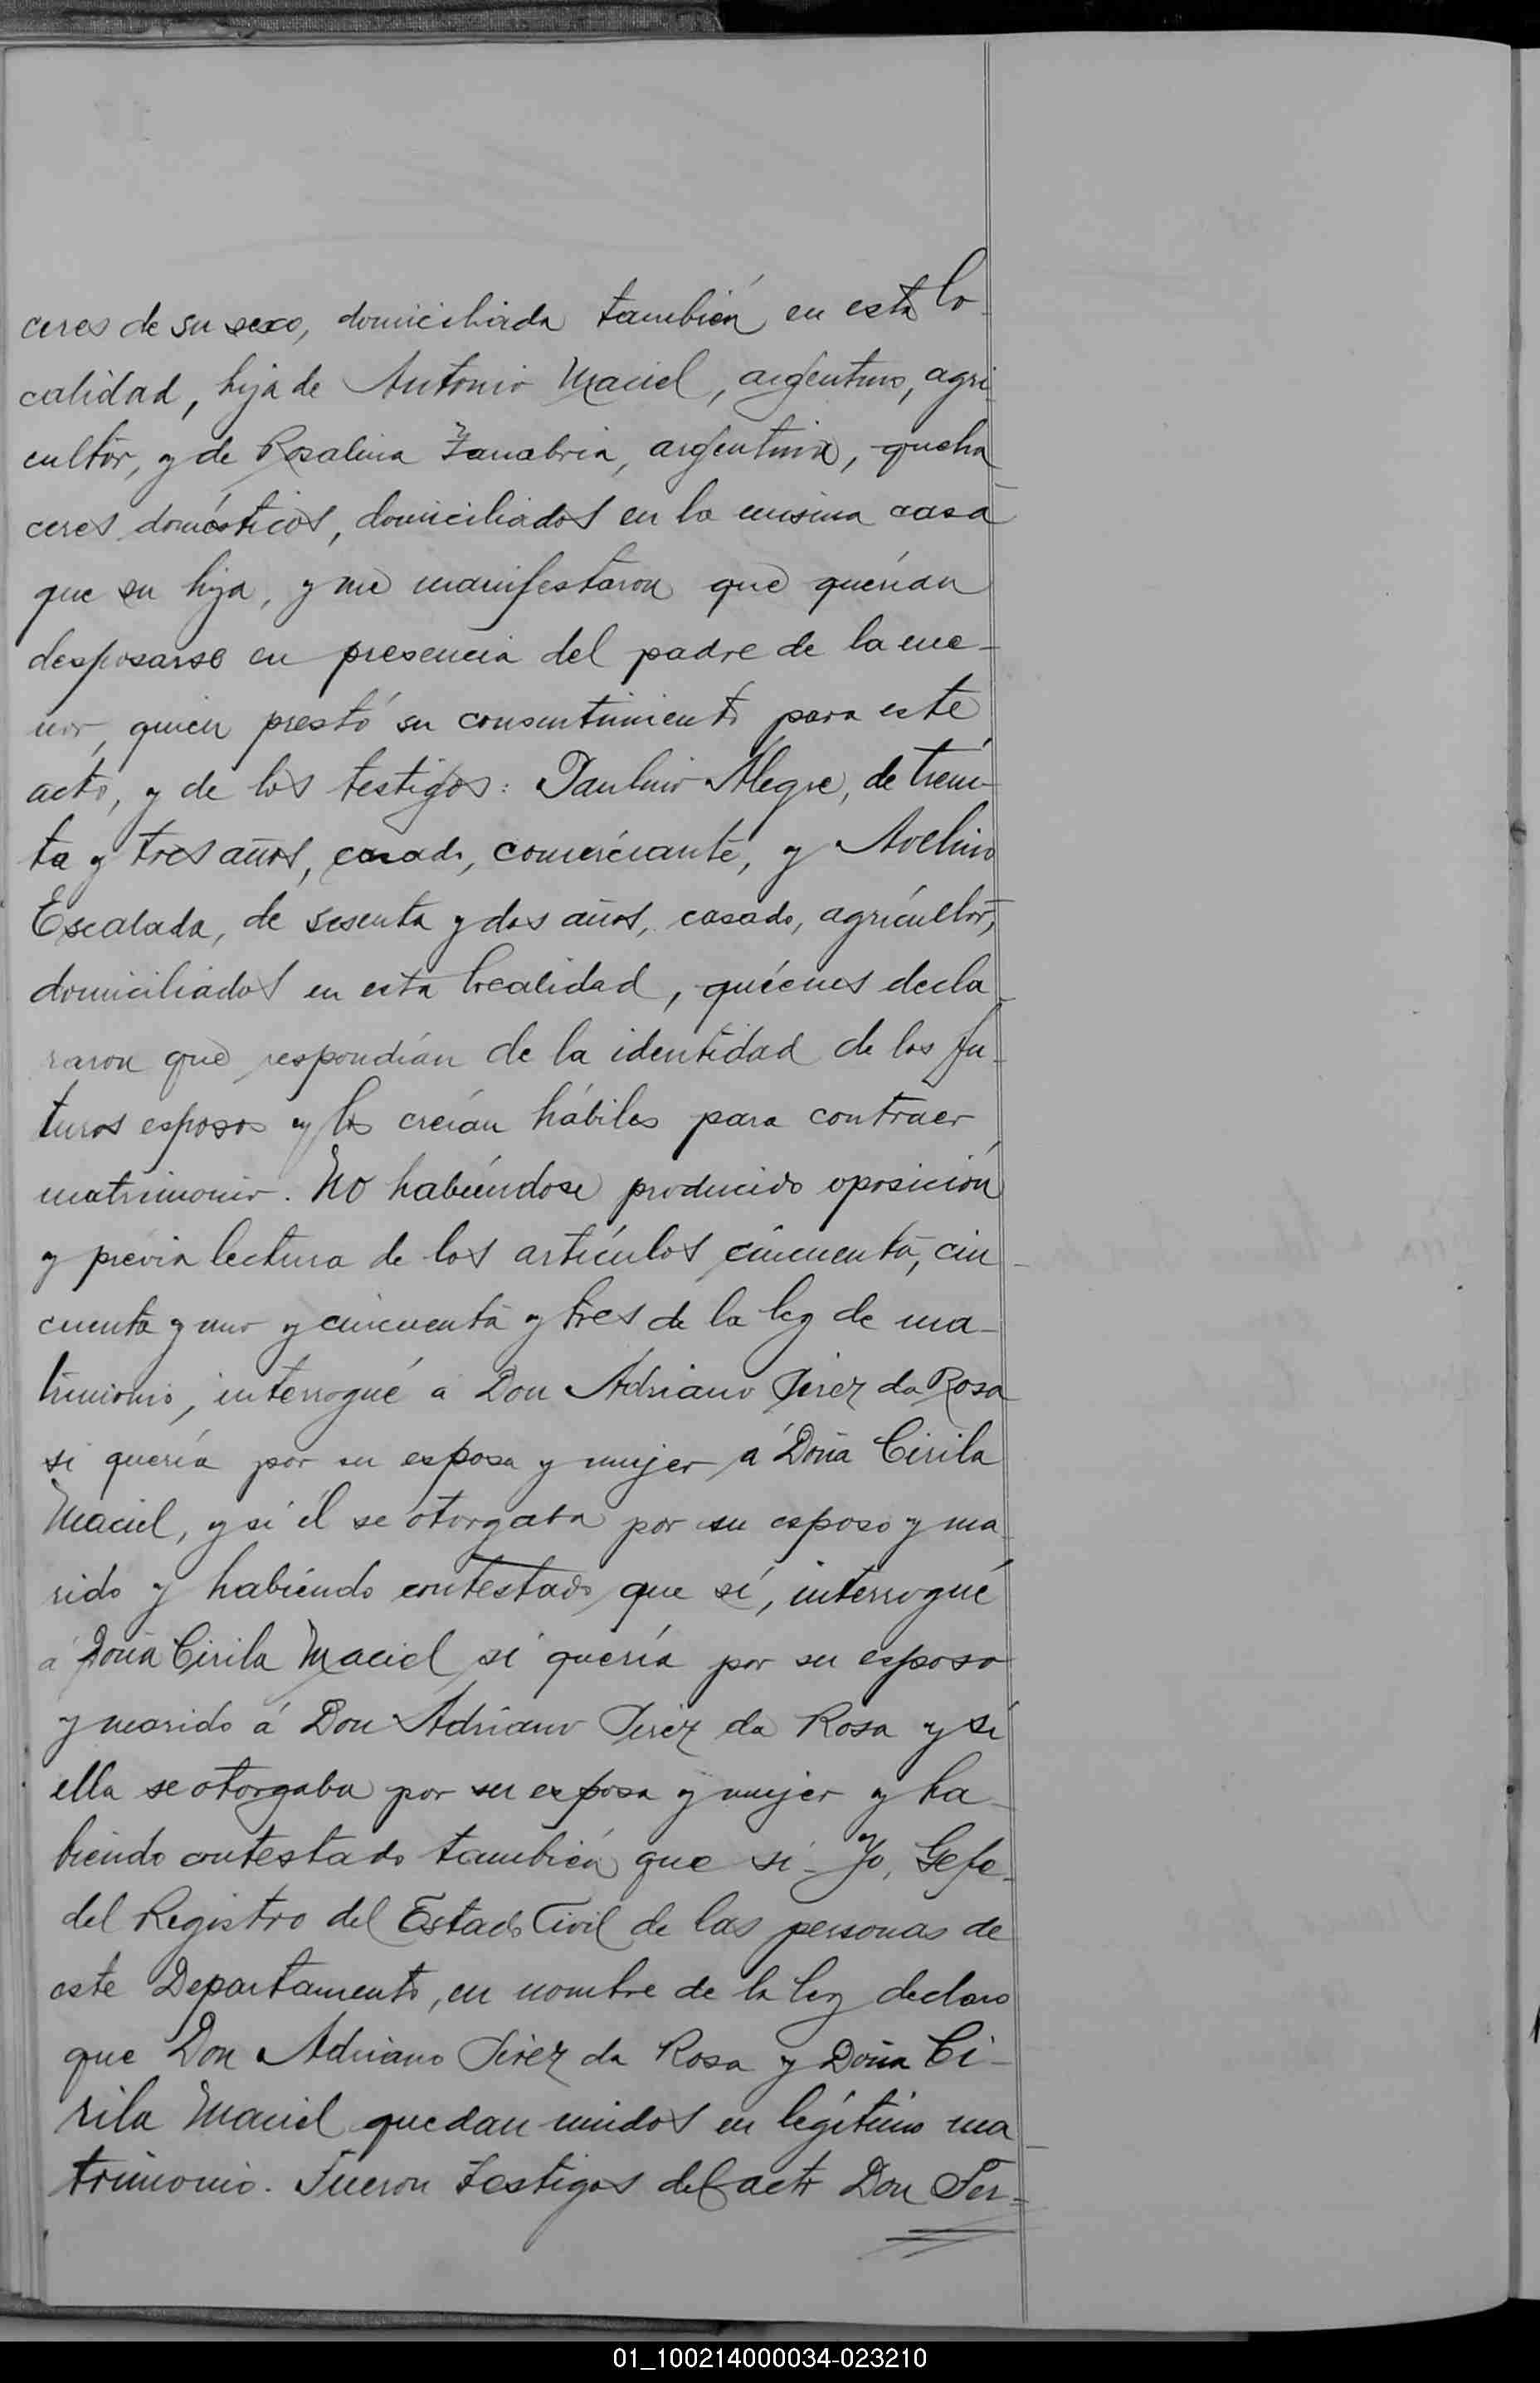 ceres de su sexo, domiciliada también en esta lo-
calidad, hija de Antonio Maciel, argentino, agri-
cultor, y de Rosalina Zanabria, argentina, queha-
ceres domésticos, domiciliados en la misma casa
que su hija, y me manifestaron que querían
desposarse en presencia del padre de la me-
nor, quien prestó su consentimiento para este
acto, y de los testigos: Paulino Alegre, de trein-
ta y tres años, casado, comerciante, y Avelino
Escalada, de sesenta y dos años, casado, agricultor,
domiciliados en esta localidad, quiénes decla-
raron que respondían de la identidad de los fu-
turos esposos y los creían hábiles para contraer
matrimonio. No habiéndose producido oposición
y previa lectura de los artículos cincuenta, cin-
cuenta y uno y cincuenta y tres de la ley de ma-
trimonio, interrogué á Don Adriano Perez da Rosa
si quería por su esposa y mujer á Doña Cirila
Maciel, y si él se otorgaba por su esposo y ma-
rido y habiendo contestado que sí, interrogué
á Doña Cirila Maciel si quería por su esposo
y marido á Don Adriano Perez da Rosa y si
ella se otorgaba por su esposa y mujer y ha-
biendo contestado también que si - Yo, Gefe
del Registro del Estado Civil de las personas de
este Departamento, en nombre de la ley declaro
que Don Adriano Perez da Rosa y Doña Ci-
rila Maciel quedan unidos en legítimo ma-
trimonio. Fueron testigos del acto Don Per=
01_100214000034-023210